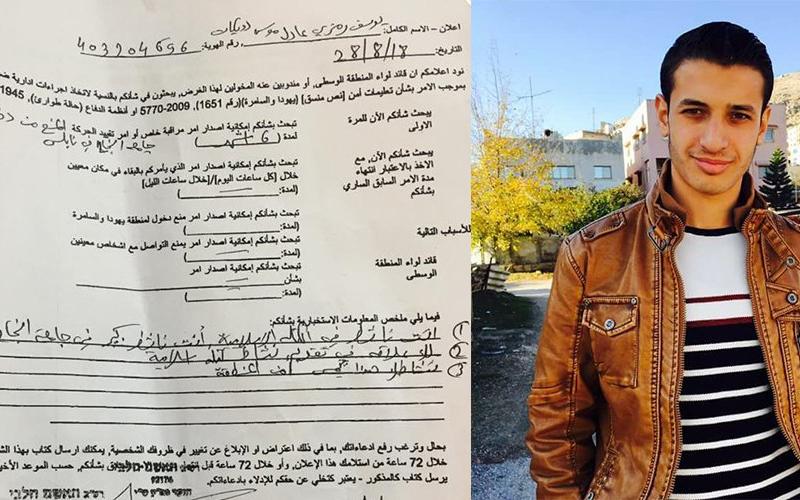 اعلان - الاسم الكامل: يوسف رمزي عادل موسى دويكات، رقم الهوية: 403904656
التاريخ: 28/8/18
نود اعلامكم ان قائد لواء المنطقة الوسطى، أو مندوبين عنه المخولين لهذا الغرض، يبحثون في شأنكم بالنسية لاتخاذ اجراءات ادارية
بموجب الامر بشأن تعليمات أمن [نص منسق] (يهودا والسامرة)(رقم 1651)، 5770-2009 او أنظمة الدفاع (حالة طوارئ)، 1945
يبحث شأنكم الآن للمرة الاولى
تبحث بشأنكم إمكانية اصدار امر مراقبة خاص أو امر تقييد الحركة
لمدة (6 اشهر) جامعة النجاح في نابلس
يبحث شأنكم الآن, مع الاخذ بالاعتبار انتهاء مدة الامر السابق الساري بشأنكم
تبحث بشأنكم إمكانية اصدار امر الذي يأمركم بالبقاء في مكان معيين
خلال [كل ساعات اليوم]/[خلال ساعات الليل]
(لمدة: )
تبحث بشأنكم امكانية اصدار امر منع دخول لمنطقة يهودا والسامرة
(لمدة: )
للأسباب التالية
تبحث بشأنكم إمكانية اصدار امر يمنع التواصل مع اشخاص معينين
(لمدة: )
قائد لواء المنطقة الوسطى
تبحث بشأنكم إمكانية اصدار امر
بشأن
(لمدة: )
فيما يلي ملخص المعلومات الاستخبارية بشأنكم:
1) انت ناشط في الكتلة الإسلامية، أنت ناشط كبير في جامعة النجاح
2) لك علاقة في تقديم نشاط كتلة اسلامية
3) نشاطك هذا يمس امن المنطقة
بحال وترغب رفع ادعاءاتك, بما في ذلك اعتراض او الإبلاغ عن تغيير في ظروفك الشخصية, يمكنك ارسال كتاب بهذا
خلال 72 ساعة من استلامك هذا الإعلان, و/أو خلال 72 ساعة قبل بشأنكم, حسب الموعد
يرسل كتاب كالمذكور - يعتبر كتخلي عن حقكم للإدلاء بادعاءاتكم.